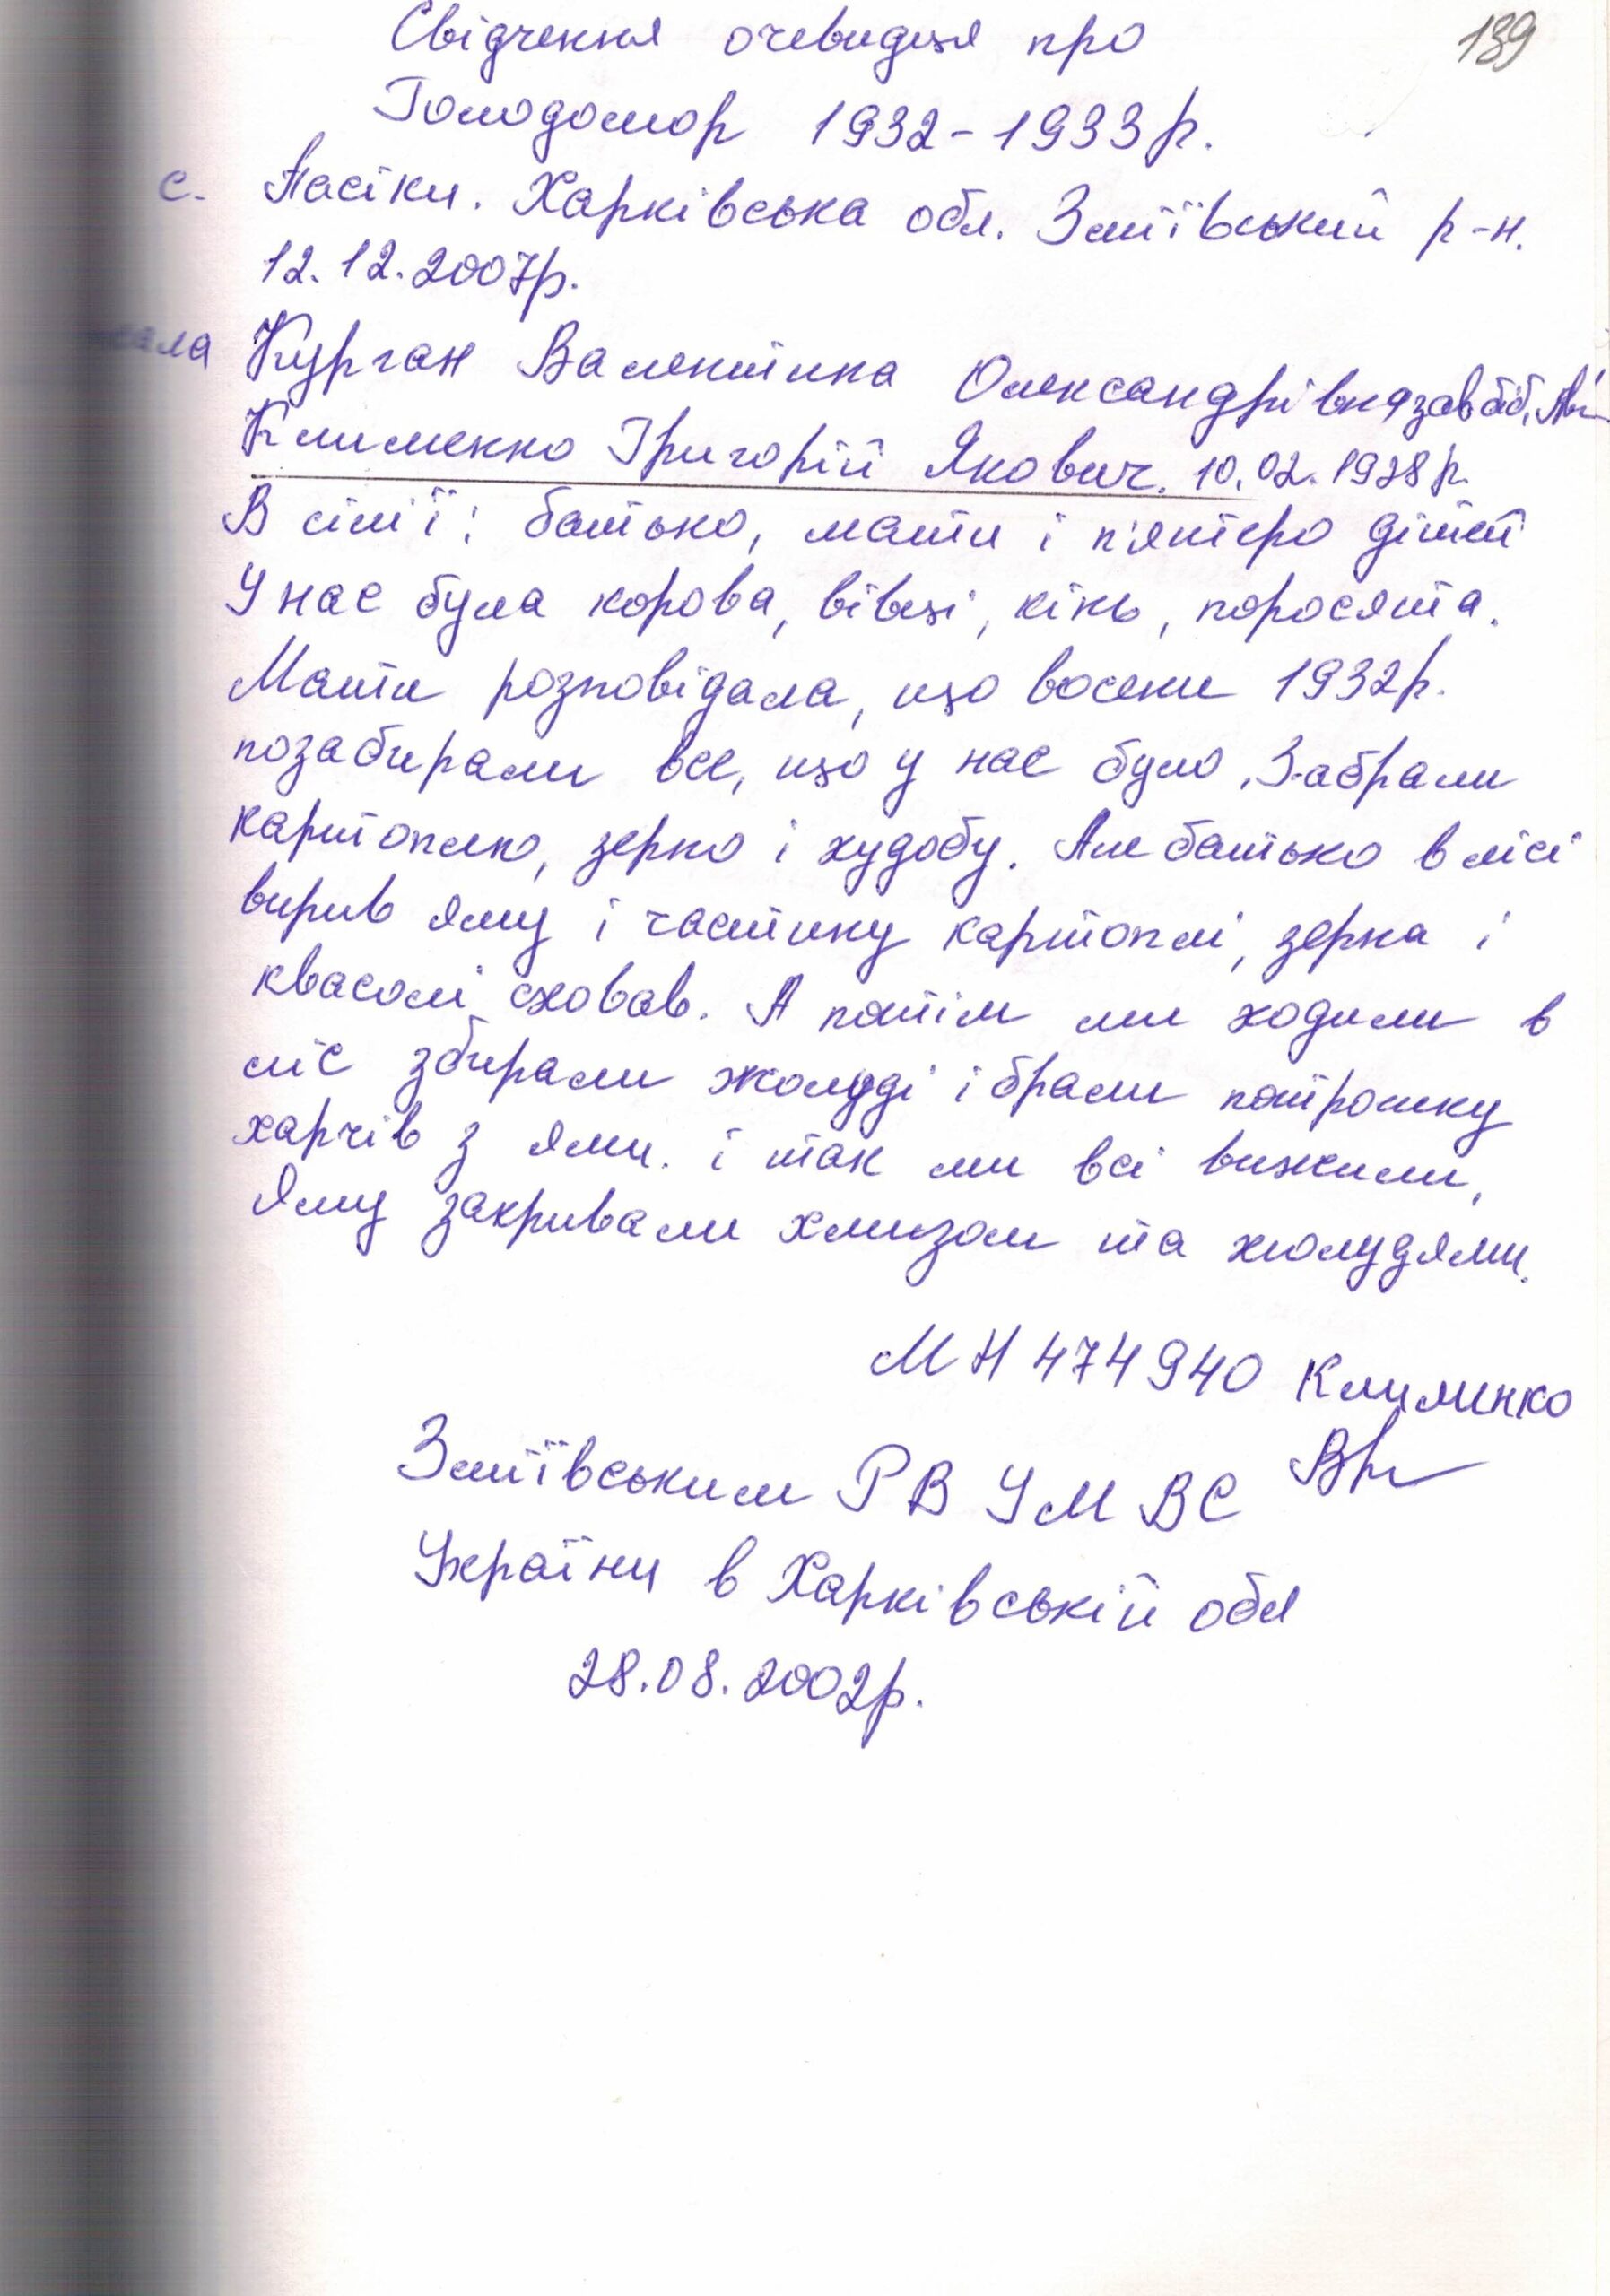 139
Свідчення очевидця про
Голодомор 1932-1933р.
с. Пасіки. Харківська обл. Зміївський р-н.
12.12.2007р.
Курган Валентина Олександрівна зав біб.
Клименко Григорій Якович. 10.02.1928р.
В сім'ї: батько, мати і п'ятеро дітей
У нас була корова, вівці, кінь, поросята.
Мати розповідала, що восени 1932р.
позабирали все, що у нас було. Забрали
картоплю, зерно і худобу. Але батько в лісі
вирив яму і частину картоплі, зерна і
квасолі сховав. А потім ми ходили в
ліс збирали жолуді і брали потрошку
харчів з ями. і так ми всі вижили,
Яму закривали хмизом та жолудями.
МН 474940 Клименко
Зміївським РВ УМВС
України в Харківській обл
28.08.2002р.